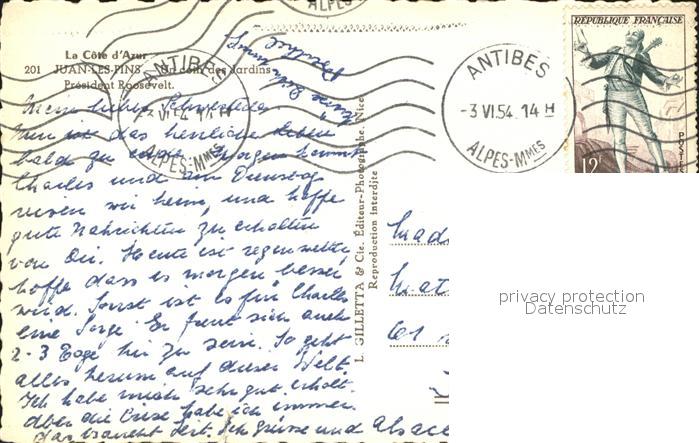 ALPES-
RÉPUBLIQUE FRANÇAISE
12F
La Côte d'Azur
201 JUAN-LES-PINS - Un coin des Jardins
Président Roosevelt.
ANTIBES
-3 VI.54. 14 H
ALPES-MMES
ANTIBES
-3 VI.54 14 H
ALPES-MMES
Mein lieber
Nun ist das herrliche Leben
bald zu Ende. Morgen kommt
Charles und am Dienstag
reisen wir heim, und hoffe
gute Nachrichten zu erhalten
von Dir. Heute ist regenwetter,
hoffe dass es morgen besser
wird. Sonst ist es für Charles
eine Sorge. Er freut sich auch
2-3 Tage hier zu sein. So geht
alles herum auf dieser Welt.
Ich habe mich sehr gut erholt.
Aber die Krise habe ich immer.
das braucht Zeit. Ich grüsse und
L. GILLETTA & Cie. Éditeur-Photographe, Nice
Reproduction interdite
privacy protection
Datenschutz